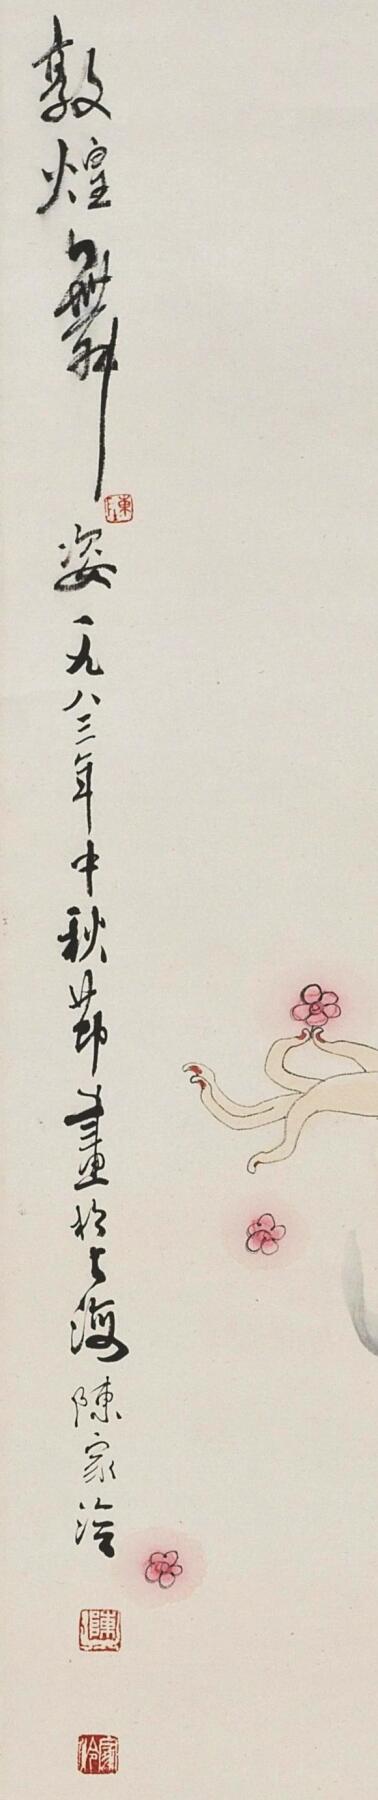 敦煌舞姿一九八三年中秋節畫於上海陳家泠
陳
陳
家泠